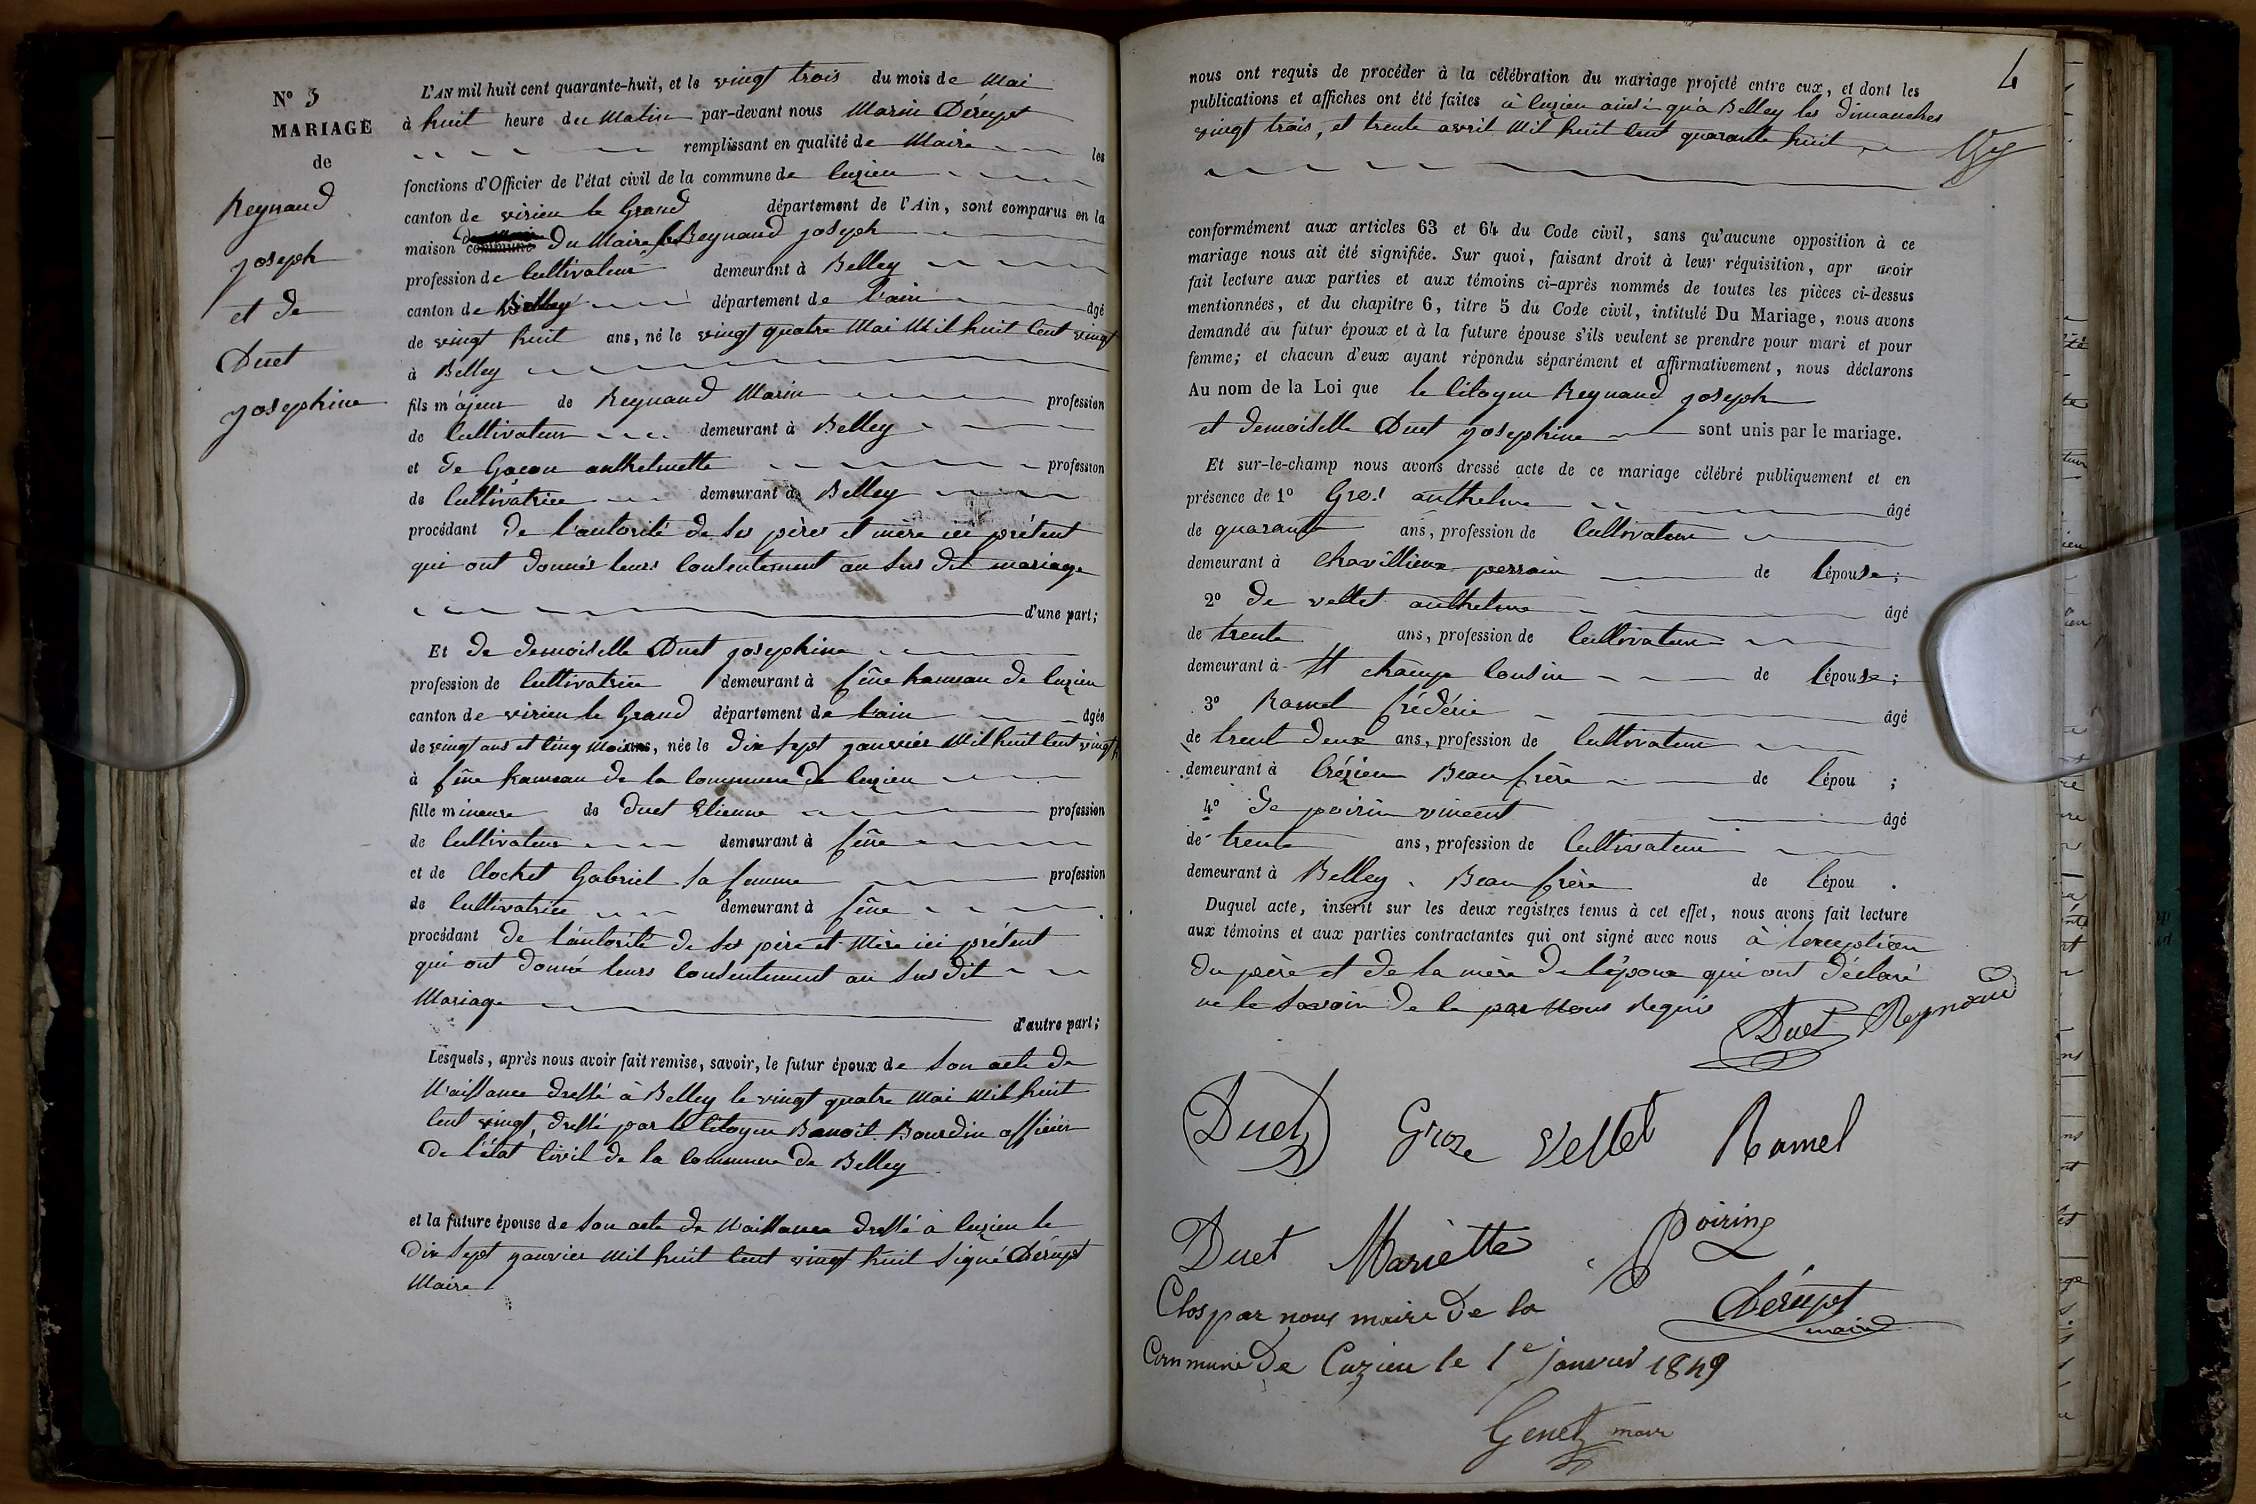 N° 3
MARIAGE
de
Reynaud
joseph
et de
Duet
josephine
L'AN mil huit cent quarante-huit, et le vingt trois du mois de Mai
à huit heure du Matin par-devant nous Marin Dérupt
remplissant en qualité de Maire les
fonctions d'Officier de l'état civil de la commune de Cuzieu
canton de virieu le Grand département de l'Ain, sont comparus en la
maison commune du Maire Reynaud joseph
profession de Cultivateur demeurant à Belley
canton de Belley département de l'ain âgé
de vingt huit ans, né le vingt quatre Mai Mil huit Cent vingt
à Belley
fils majeur de Reynaud Marin profession
de Cultivateur demeurant à Belley
et de Gacon anthelmette profession
de Cultivatrice demeurant à Belley
procédant de l'autorité de ses pères et mère ici présent
qui ont donnés leurs Consentement au sus dit mariage
d'une part;
Et de demoiselle Duet josephine
profession de Cultivatrice demeurant à fêne hameau de Cuzieu
canton de virieu le Grand département de l'ain âgée
de vingt ans et Cinq Mois ans, née le dix sept janvier Mil huit Cent vingt h
à fêne hameau de la Commune de Cuzieu
fille mineure de Duet Etienne profession
de Cultivateur demeurant à fêne
et de Clochet Gabriel sa femme profession
de Cultivatrice demeurant à fêne
procédant de l'autorité de ses père et Mère ici présent
qui ont donné leurs Consentement au sus dit
Mariage
d'autre part;
Lesquels, après nous avoir fait remise, savoir, le futur époux de son acte de
Naissance dressé à Belley le vingt quatre Mai Mil huit
Cent vingt, dressé par le Citoyen Benoit Bourdin officier
de l'état Civil de la Commune de Belley
et la future épouse de son acte de Naissance dressé à Cuzieu le
dix sept janvier Mil huit Cent vingt huit signé Dérupt
Maire
4
nous ont requis de procéder à la célébration du mariage projeté entre eux, et dont les
publications et affiches ont été faites à Cuzieu ainsi qu'à Belley les Dimanches
vingt trois, et trente avril Mil huit Cent quarante huit
conformément aux articles 63 et 64 du Code civil, sans qu'aucune opposition à ce
mariage nous ait été signifiée. Sur quoi, faisant droit à leur réquisition, apr avoir
fait lecture aux parties et aux témoins ci-après nommés de toutes les pièces ci-dessus
mentionnées, et du chapitre 6, titre 5 du Code civil, intitulé Du Mariage, nous avons
demandé au futur époux et à la future épouse s'ils veulent se prendre pour mari et pour
femme; et chacun d'eux ayant répondu séparément et affirmativement, nous déclarons
Au nom de la Loi que le Citoyen Reynaud joseph
et demoiselle Duet josephine sont unis par le mariage.
Et sur-le-champ nous avons dressé acte de ce mariage célébré publiquement et en
présence de 1° Gros anthelme âgé
de quarante ans, profession de Cultivateur
demeurant à Chavillieux perrain de l'épouse;
2° de vettet anthelme âgé
de trente ans, profession de Cultivateur
demeurant à St champ Cousin de l'épouse;
3° Ramel frédéric âgé
de trent deux ans, profession de Cultivateur
demeurant à Crézieu Beau frère de l'épou ;
4° de poirin vincent âgé
de trente ans, profession de Cultivateur
demeurant à Belley. Beau frère de l'épou .
Duquel acte, inscrit sur les deux registres tenus à cet effet, nous avons fait lecture
aux témoins et aux parties contractantes qui ont signé avec nous à l'exception
du père et de la mère de l'époux qui ont déclaré
ne le savoir de le par Nous Requis
Duet Reynaud
Duet Gros Vettet Ramel
Duet Mariette Poirin
Clos par nous maire de la Dérupt
maire
Commune de Cuzieu le 1e janvier 1849
Genet maire